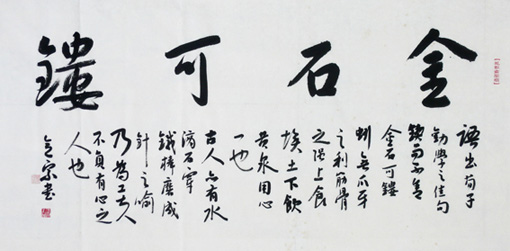 金石可鏤
語出荀子
勸學之佳句
鍥而不舍
金石可鏤
蚓無爪牙
之利筋骨
之强上食
埃土下飲
黄泉用心
一也
古人亦有水
滴石穿
鐵棒磨成
針之喻
乃為工夫
不負有心之
人也
宗書